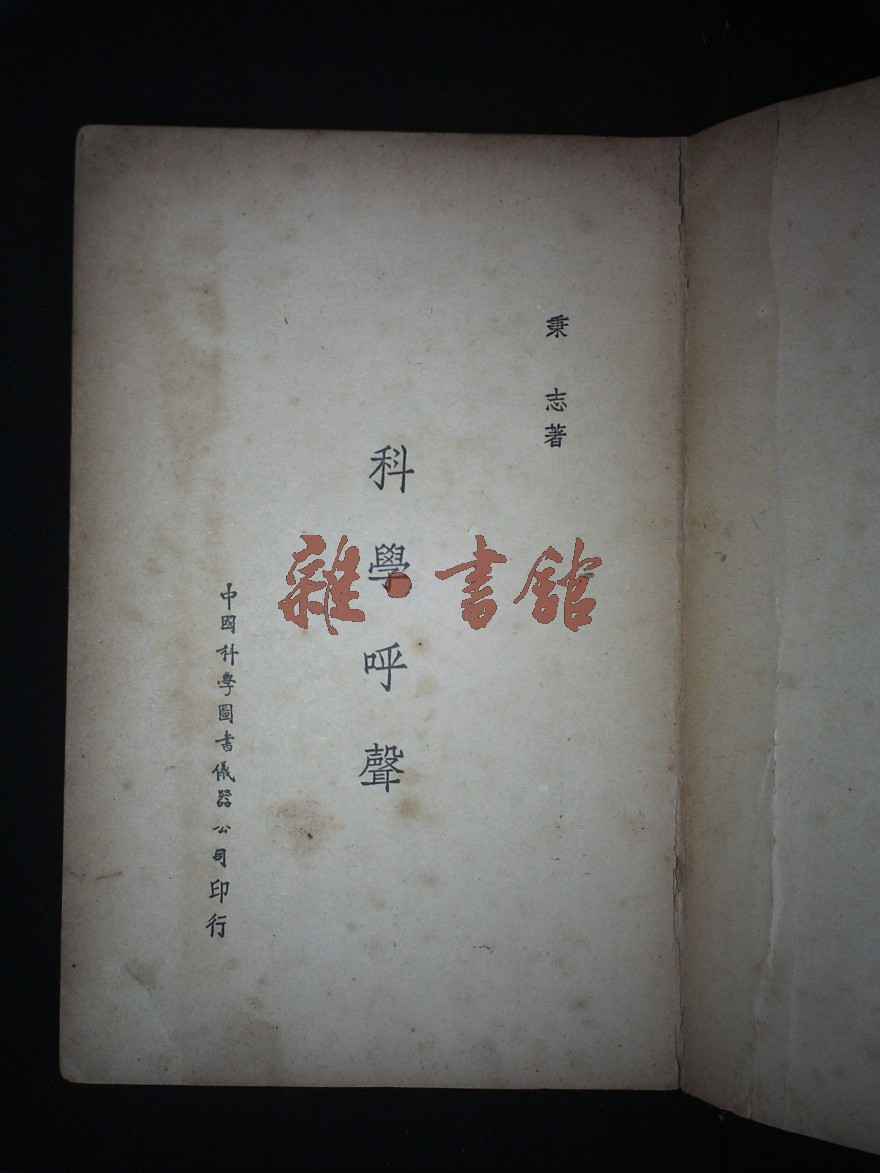 秉志著
科學呼聲
中國科學圖書儀器公司印行
雜·書館